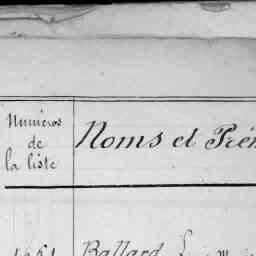 Numéros
de
la liste
Noms et Pré
Ballard